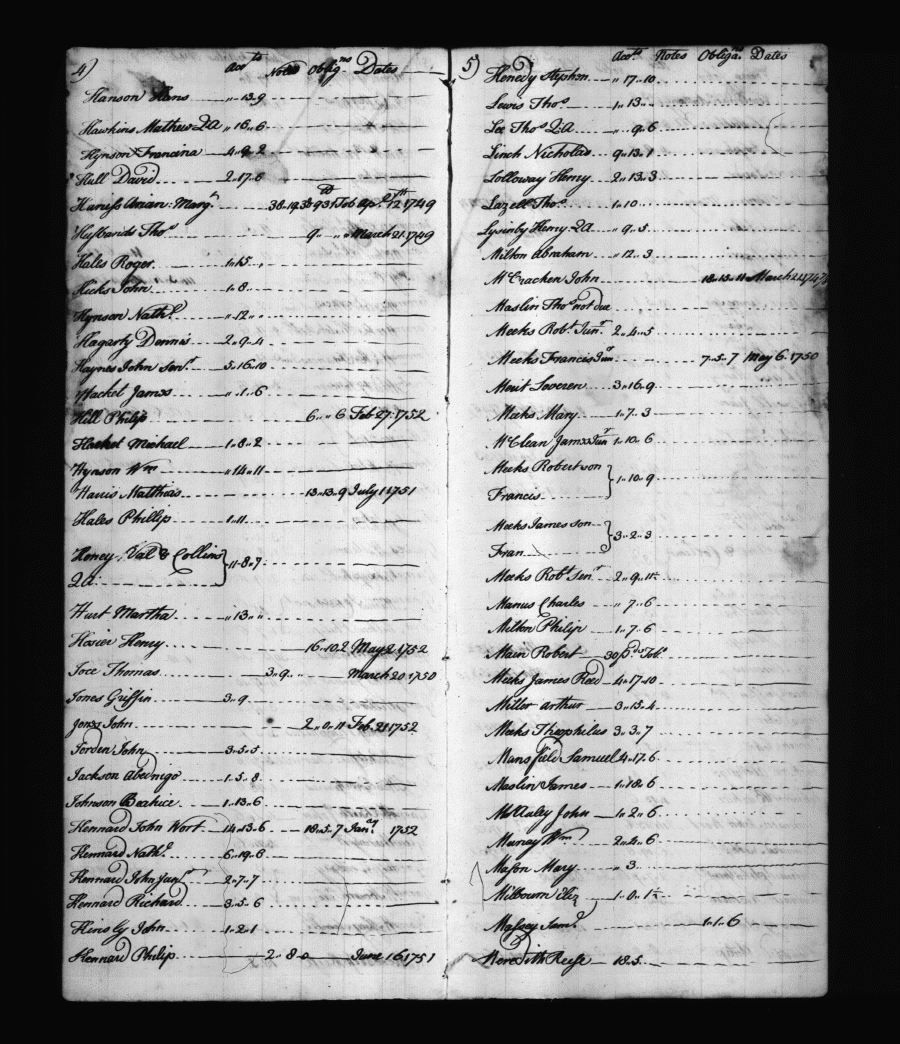 4)
Accts Notes Obligns Dates
Hanson Hans " 13.9
Hawkins Mathew QA " 16 " 6
Hynson Francina 4 " 9 " 2
Hull David 2 " 17 " 6
Marg.t
Husbands Thos 9 " " March 21.1749
Hales Roger 1 " 15 "
Hicks John 1 " 8
Hynson Nathl " 12 "
Hagarty Dennis 2 " 9 " 4
Haynes John Senr 5 " 16.10
Hacket James " 1 " 6
Hill Philip 6 " " 6 Feb 27.1752
Hacket Michael 1 " 8 " 2
Hynson Wm " 14 " 11
Harris Matthias 13 " 13 " 9 July 1 1751
Hales Phillip 1 " 11
Heney, Val & Collins
QA } 11 " 8 " 7
Hurt Martha " 13 " "
Hosier Henry 16 " 10.2 May 2 1752
Joce Thomas 3 " 9 " March 20 1750
Jones Griffin 3 " 9
Jones John 2 " 0 " 11 Feb. 21 1752
Jorden John 3 " 5 " 5
Jackson Abednigo 1 " 5 " 8
Johnson Beatrice 1 " 13 " 6
Hennard John Wort 14 " 13 " 6 18 " 5 " 7 Janay 1752
Hennard Nathl 6 " 19 " 6
Hennard John Junr 2 " 7 " 7
Hennard Richard 3 " 5 " 6
John 1 " 2 " 1
Hennard Philip 2 " 8 " 0 June 16 1751
5)
Accts Notes Obligns Dates
Henedy Stephen " 17 " 10
Lewis Thos 1 " 13
Lee Thos QA " 9 " 6
Linch Nicholas 9 " 13 " 1
Lolloway Henry 2 " 13 " 3
Lazell Thos 1 " 10
Lysinby Henry QA " 9 " 5
Milton Abraham " 12 " 3
McCracken John 18 " 15 " 11 March
Maslin Thos not due
Meeks Robt Junr 2 " 4 " 5
Meeks Francis Junr 7 " 5 " 7 May 6 1750
Merit Severen 3 " 16 " 9
Meeks Mary 1 " 7 " 3
McClean James Junr 1 " 10 " 6
Meeks Robert son
Francis } 1 " 10 " 9
Meeks James son
Fran } 3 " 2 " 3
Meeks Robt Senr 2 " 9 " 11½
Manus Charles " 7 " 6
Milton Philip 1 " 7 " 6
Main Robert
Meeks James Reed 4 " 17 " 10
Miller Arthur 3 " 15 " 4
Meeks Theophilus 3 " 3 " 7
Mansfield Samuel 4 " 17 " 6
Maslin James 1 " 18 " 6
McAuley John 1 " 2 " 6
Murray Wm 2 " 4 " 6
Mason Mary " 3
Milbourn Eliz 1 " 0 " 1½
Massey Saml 1 " 1 " 6
Meredith Reese 18 " 5